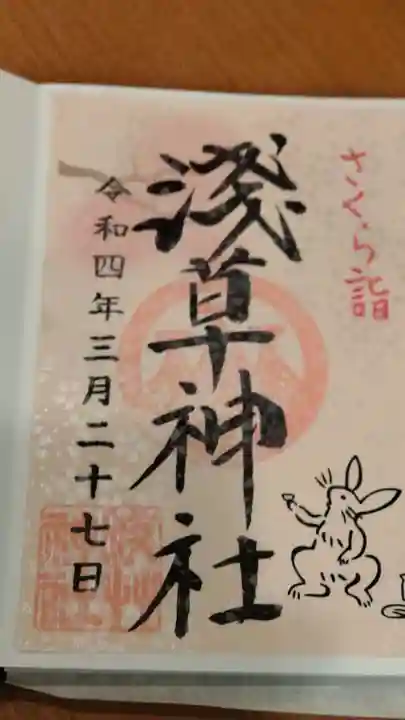 さくら詣
淺草神社
令和四年三月二十七日